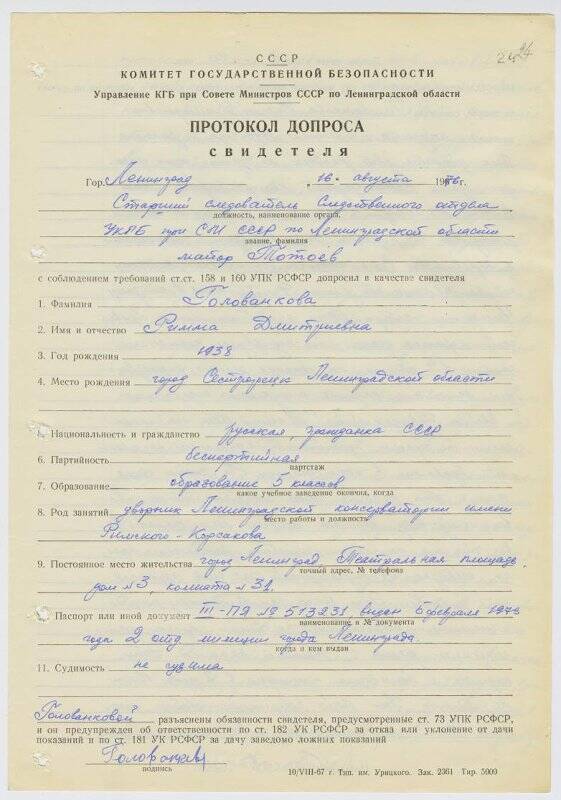 24
СССР
КОМИТЕТ ГОСУДАРСТВЕННОЙ БЕЗОПАСНОСТИ
Управление КГБ при Совете Министров СССР по Ленинградской области
ПРОТОКОЛ ДОПРОСА
свидетеля
Гор. Ленинград , 16 августа 1976 г.
Старший следователь Следственного отдела
должность, наименование органа,
УКГБ при СМ СССР по Ленинградской области
звание, фамилия
майор Тотоев
с соблюдением требований ст.ст. 158 и 160 УПК РСФСР допросил в качестве свидетеля
1. Фамилия Голованкова
2. Имя и отчество Римма Дмитриевна
3. Год рождения 1938
4. Место рождения город Сестрорецк Ленинградской области
5. Национальность и гражданство русская, гражданка СССР
6. Партийность беспартийная
партстаж
7. Образование образование 5 классов
какое учебное заведение окончил, когда
8. Род занятий дворник Ленинградской консерватории имени
место работы и должность
Римского-Корсакова
9. Постоянное место жительства город Ленинград, Театральная площадь
точный адрес, № телефона
дом №3, комната №31.
Паспорт или иной документ III-ПЯ №513231 выдан 5 февраля
наименование и № документа
года 2 отд милиции города Ленинграда
когда и кем выдан
11. Судимость не судима
Голованковой разъяснены обязанности свидетеля, предусмотренные ст. 73 УПК РСФСР,
и он предупрежден об ответственности по ст. 182 УК РСФСР за отказ или уклонение от дачи
показаний и по ст. 181 УК РСФСР за дачу заведомо ложных показаний
подпись
10/VIII-67 г. Тип. им. Урицкого. Зак. 2361 Тир. 5000